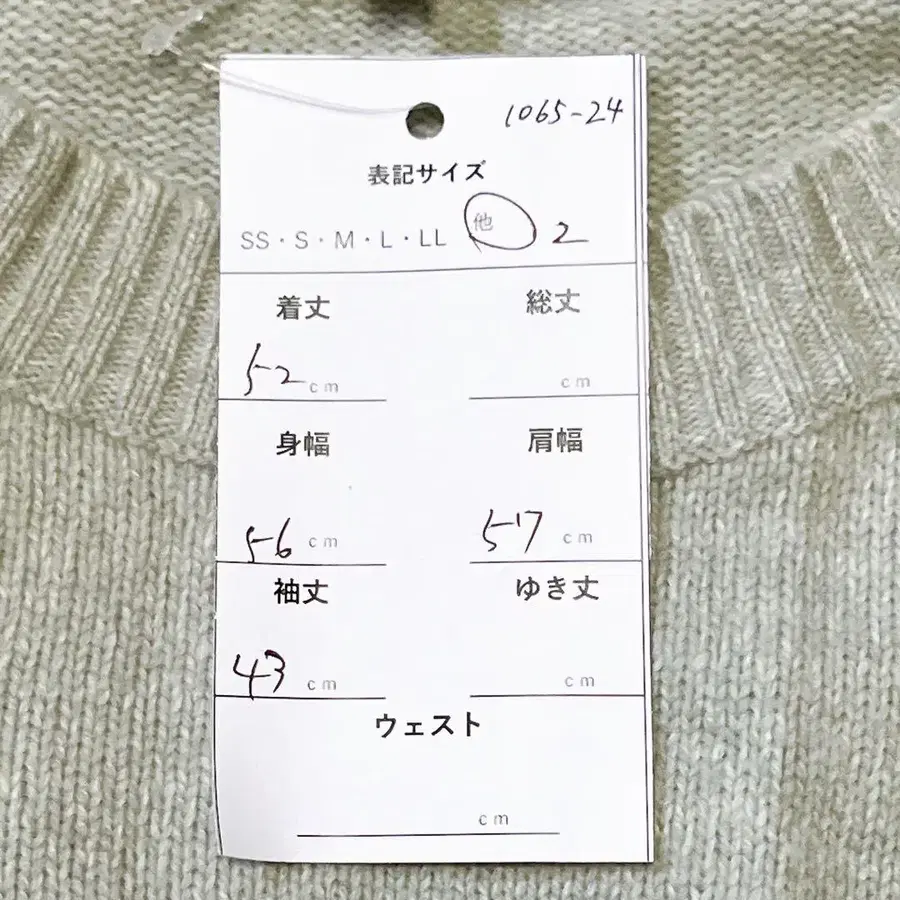 1065-24
表記サイズ
SS・S・M・L・LL 他 2
着丈 総丈
52 cm cm
身幅 肩幅
56 cm 57 cm
袖丈 ゆき丈
43 cm cm
ウェスト
cm